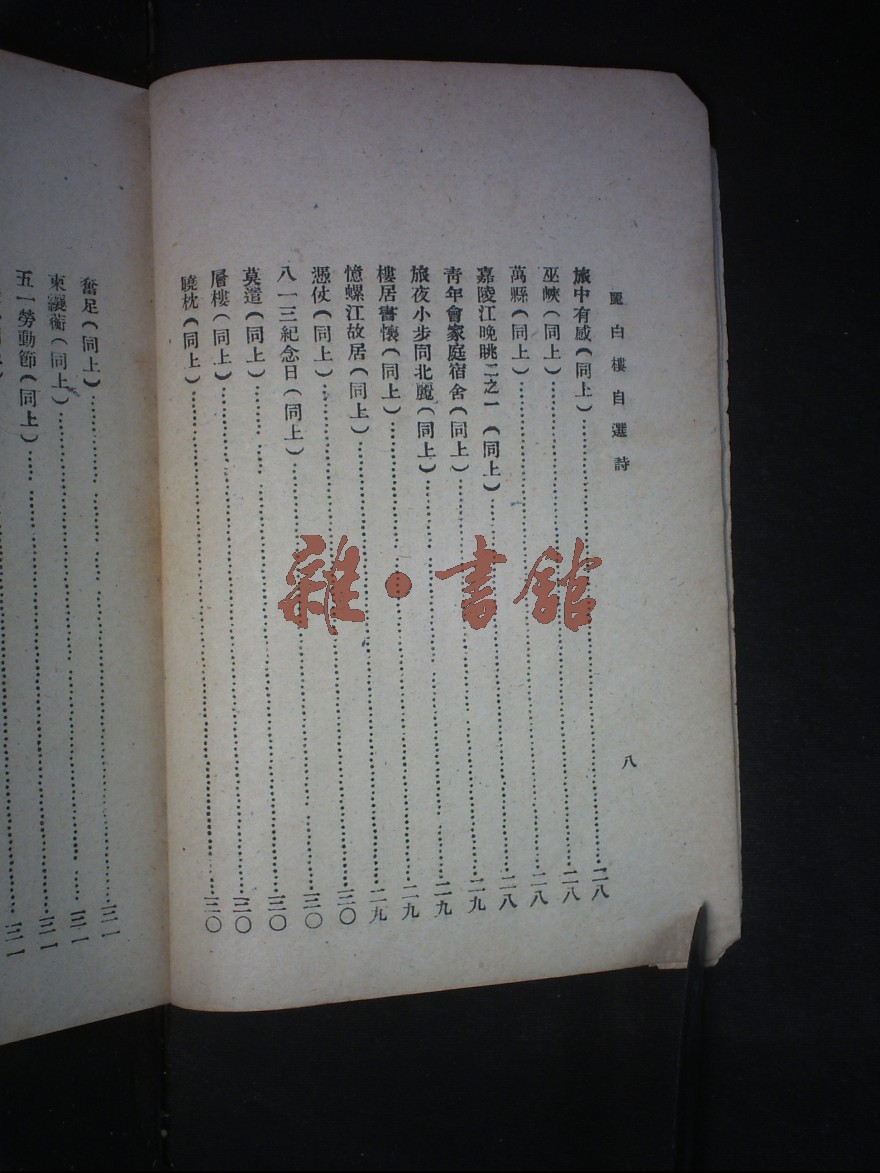 麗白樓自選詩
八
旅中有感(同上)……二八
巫峽(同上)……二八
萬縣(同上)……二八
嘉陵江晚眺二之一(同上)……二八
青年會家庭宿舍(同上)……二九
旅夜小步同北麗(同上)……二九
樓居書懷(同上)……二九
憶螺江故居(同上)……二九
憑仗(同上)……三〇
八一三紀念日(同上)……三〇
莫遣(同上)……三〇
層樓(同上)……三〇
曉枕(同上)……三〇
奮足(同上)……三一
柬纕蘅(同上)……三一
五一勞動節(同上)……三一
三一
雜·書館